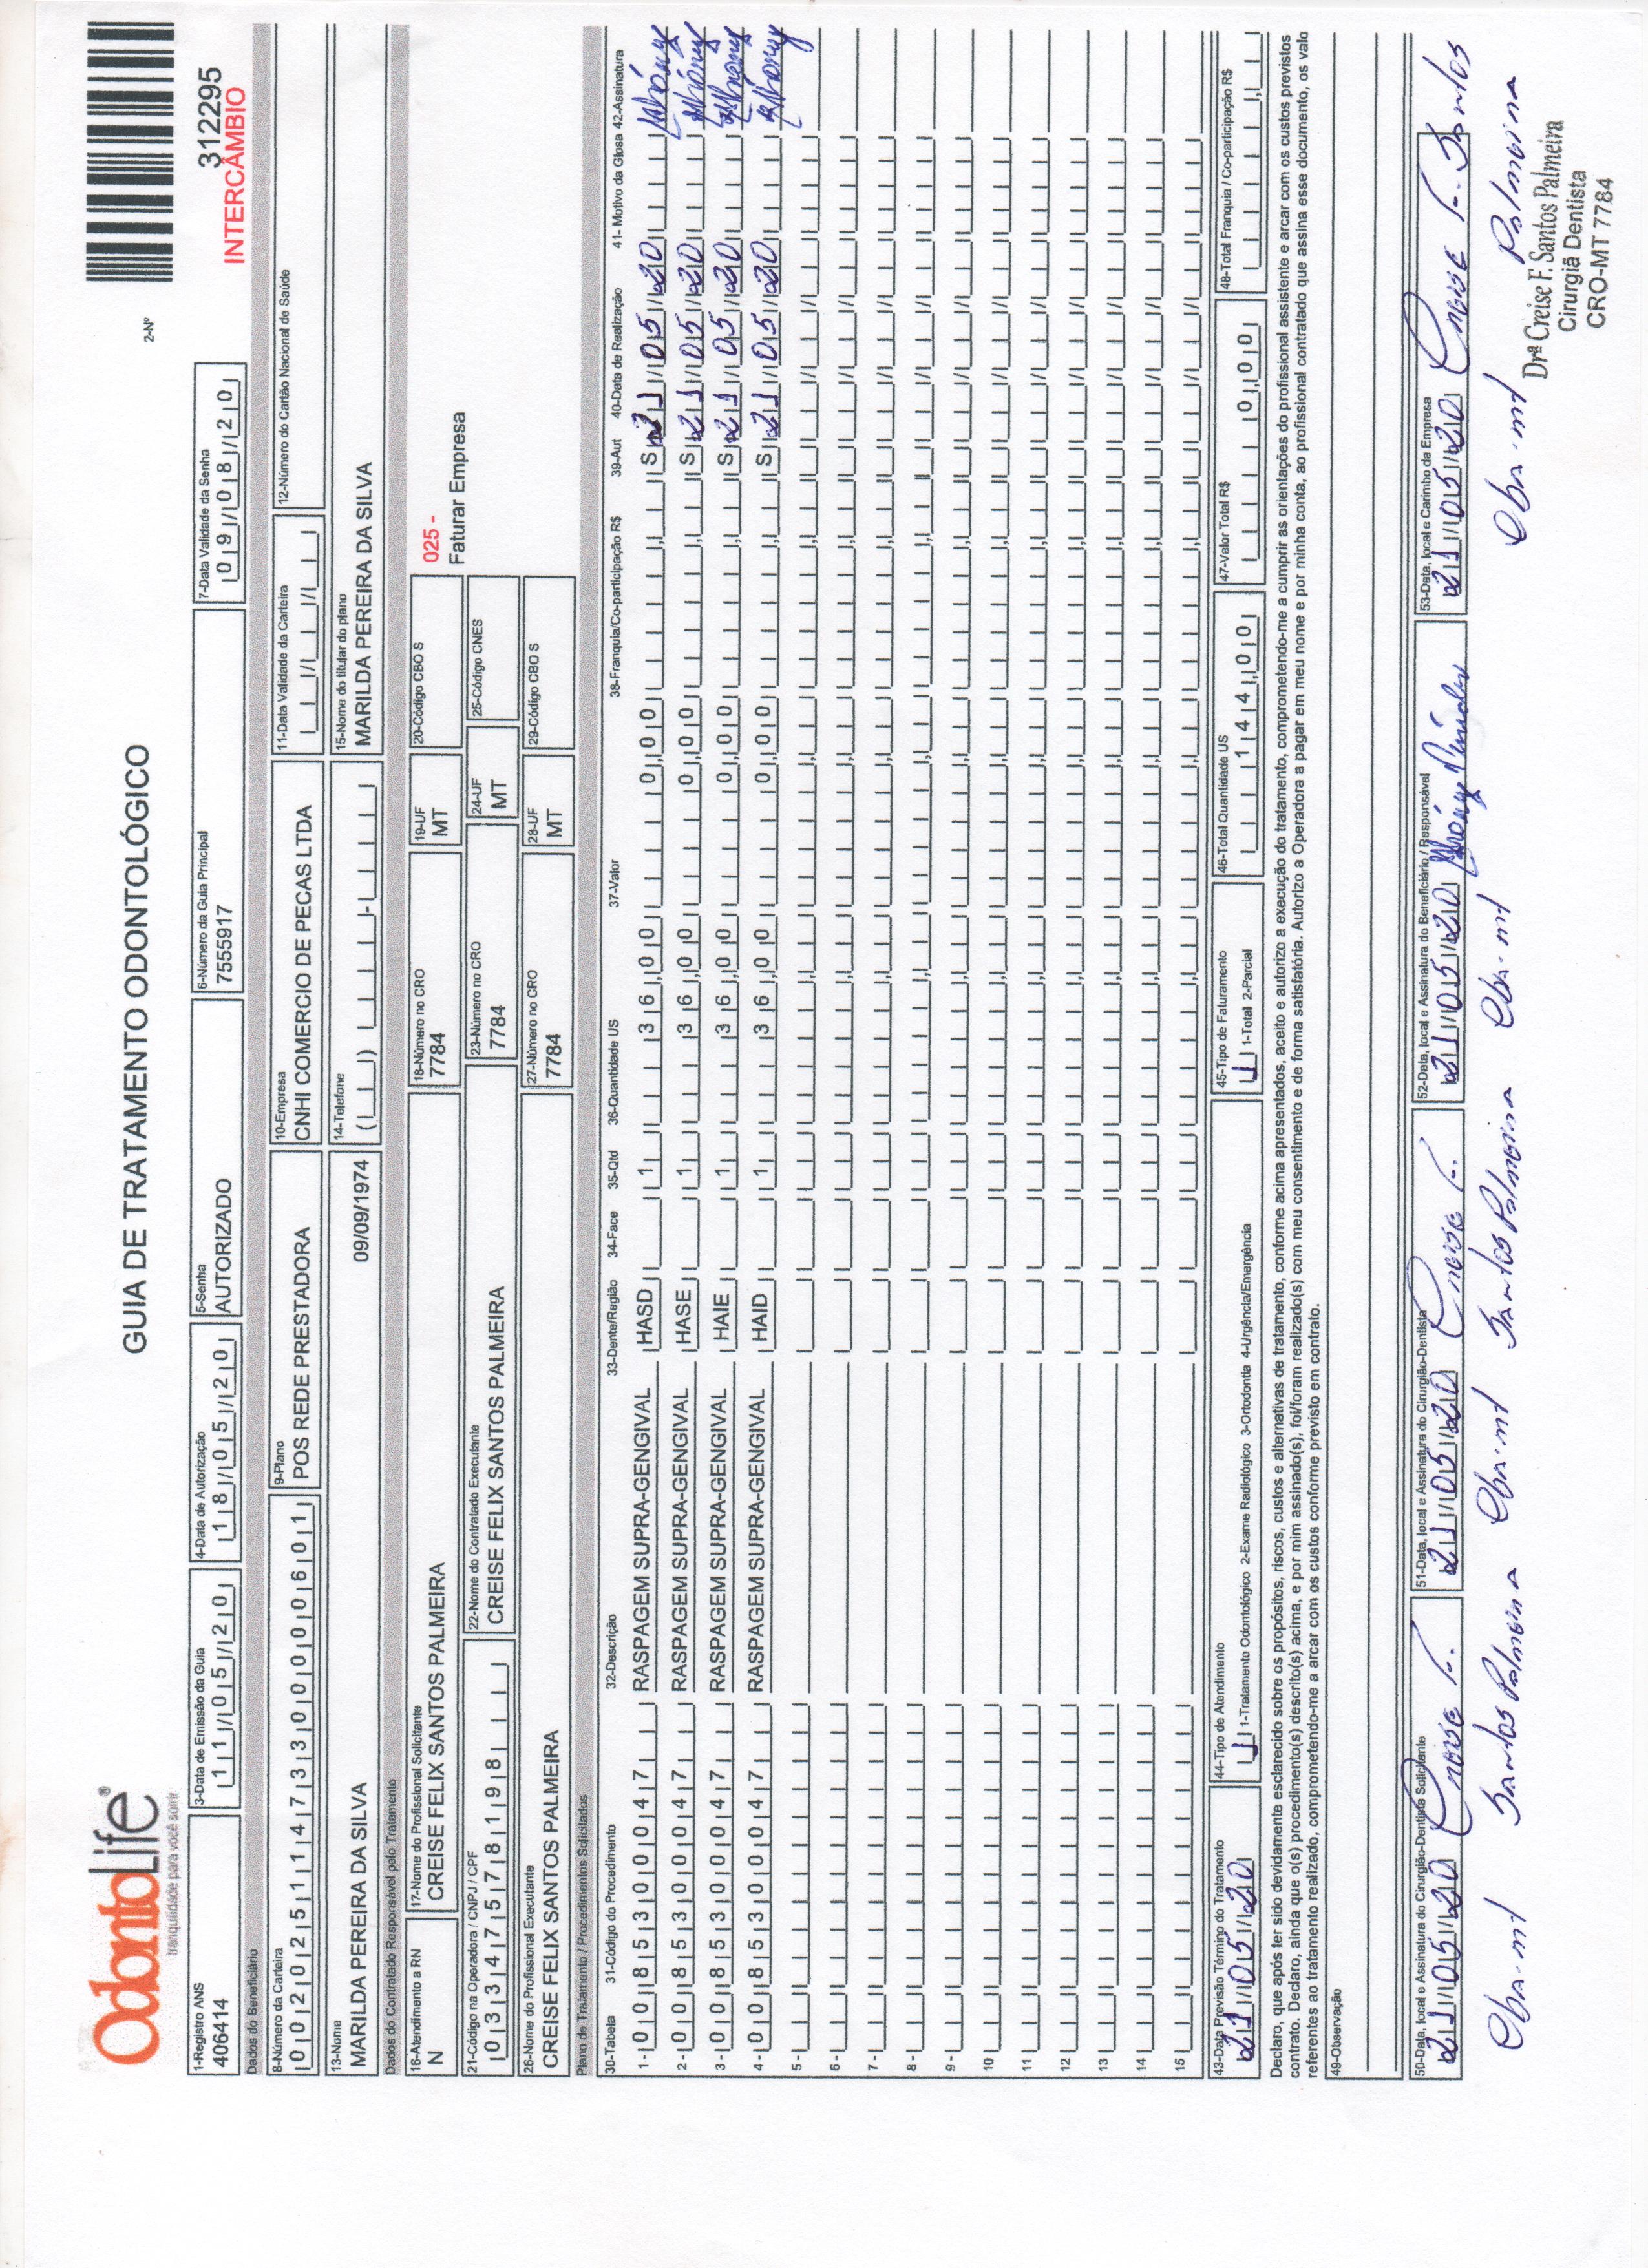 OdontoLife®
tranquilidade para você sorrir
GUIA DE TRATAMENTO ODONTOLÓGICO
2-Nº
312295
INTERCÂMBIO
1-Registro ANS 3-Data de Emissão da Guia 4-Data de Autorização 5-Senha 6-Número da Guia Principal 7-Data Validade da Senha
406414 11/05/20 18/05/20 AUTORIZADO 7555917 09/08/20
Dados do Beneficiário
8-Número da Carteira 9-Plano 10-Empresa 11-Data Validade da Carteira 12-Número do Cartão Nacional de Saúde
00202511473300000601 POS REDE PRESTADORA CNHI COMERCIO DE PECAS LTDA / /
13-Nome 14-Telefone 15-Nome do titular do plano
MARILDA PEREIRA DA SILVA 09/09/1974 ( ) - MARILDA PEREIRA DA SILVA
Dados do Contratado Responsável pelo Tratamento
16-Atendimento a RN 17-Nome do Profissional Solicitante 18-Número no CRO 19-UF 20-Código CBO S
N CREISE FELIX SANTOS PALMEIRA 7784 MT
025 -
Faturar Empresa
21-Código na Operadora / CNPJ / CPF 22-Nome do Contratado Executante 23-Número no CRO 24-UF 25-Código CNES
03347578198 CREISE FELIX SANTOS PALMEIRA 7784 MT
26-Nome do Profissional Executante 27-Número no CRO 28-UF 29-Código CBO S
CREISE FELIX SANTOS PALMEIRA 7784 MT
Plano de Tratamento / Procedimentos Solicitados
30-Tabela 31-Código do Procedimento 32-Descrição 33-Dente/Região 34-Face 35-Qtd 36-Quantidade US 37-Valor 38-Franquia/Co-participação R$ 39-Aut 40-Data de Realização 41- Motivo da Glosa 42-Assinatura
1- 00 85300047 RASPAGEM SUPRA-GENGIVAL HASD 1 36,00 0,00 S 21/05/20
2- 00 85300047 RASPAGEM SUPRA-GENGIVAL HASE 1 36,00 0,00 S 21/05/20
3- 00 85300047 RASPAGEM SUPRA-GENGIVAL HAIE 1 36,00 0,00 S 21/05/20
4- 00 85300047 RASPAGEM SUPRA-GENGIVAL HAID 1 36,00 0,00 S 21/05/20
5-
6-
7-
8-
9-
10
11
12
13
14
15
43-Data Previsão Término do Tratamento 44-Tipo de Atendimento 45-Tipo de Faturamento 46-Total Quantidade US 47-Valor Total R$ 48-Total Franquia / Co-participação R$
21/05/20 1 1-Tratamento Odontológico 2-Exame Radiológico 3-Ortodontia 4-Urgência/Emergência 1 1-Total 2-Parcial 144,00 0,00
Declaro, que após ter sido devidamente esclarecido sobre os propósitos, riscos, custos e alternativas de tratamento, conforme acima apresentados, aceito e autorizo a execução do tratamento, comprometendo-me a cumprir as orientações do profissional assistente e arcar com os custos previstos
contrato. Declaro, ainda que o(s) procedimento(s) descrito(s) acima, e por mim assinado(s), foi/foram realizado(s) com meu consentimento e de forma satisfatória. Autorizo a Operadora a pagar em meu nome e por minha conta, ao profissional contratado que assina esse documento, os valo
referentes ao tratamento realizado, comprometendo-me a arcar com os custos conforme previsto em contrato.
49-Observação
50-Data, local e Assinatura do Cirurgião-Dentista Solicitante 51-Data, local e Assinatura do Cirurgião-Dentista 52-Data, local e Assinatura do Beneficiário / Responsável 53-Data, local e Carimbo da Empresa
21/05/20 Creise F. 21/05/20 Creise F. 21/05/20 21/05/20 Creise F. Santos
Cba-mt Santos Palmeira Cba-mt Santos Palmeira Cba-mt Cba-mt Palmeira
Drª Creise F. Santos Palmeira
Cirurgiã Dentista
CRO-MT 7784